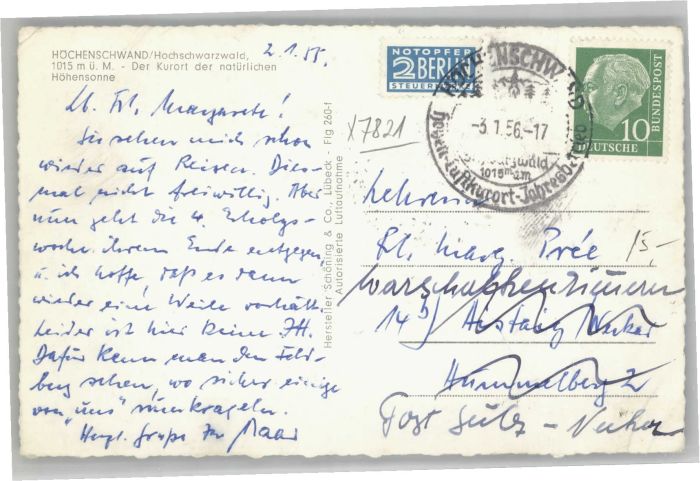 HÖCHENSCHWAND/Hochschwarzwald,
1015 m ü. M. - Der Kurort der natürlichen
Höhensonne
2.1.55.
Lb. Frl. Margarete!
Sie sehen mich schon
wieder auf Reisen. Dies-
mal nicht freiwillig. Aber
nun geht die 4. Erholgs-
woche ihrem Ende entgegen,
u. ich hoffe, daß es dann
wieder eine Weile vorhält.
Leider ist hier keine JH.
Dafür kann man den Feld-
berg sehen, wo sicher einige
von "uns" rumkrageln.
Herzl. Grüße Ihr
Hersteller Schöning & Co., Lübeck - Flg 260-f
Autorisierte Luftaufnahme
X7821
NOTOPFER
2 BERLIN
STEUERMARKE
HÖCHENSCHWAND
-3.1.56.-17
Schwarzwald
1015 m
Höhen-Luftkurort-Jahresbetrieb
10
DEUTSCHE
BUNDESPOST
Lehrerin
Frl. Marg. Prée
15,-
14b) Aistaig Neckar
Hummelberg 2
Post Sulz - Neckar